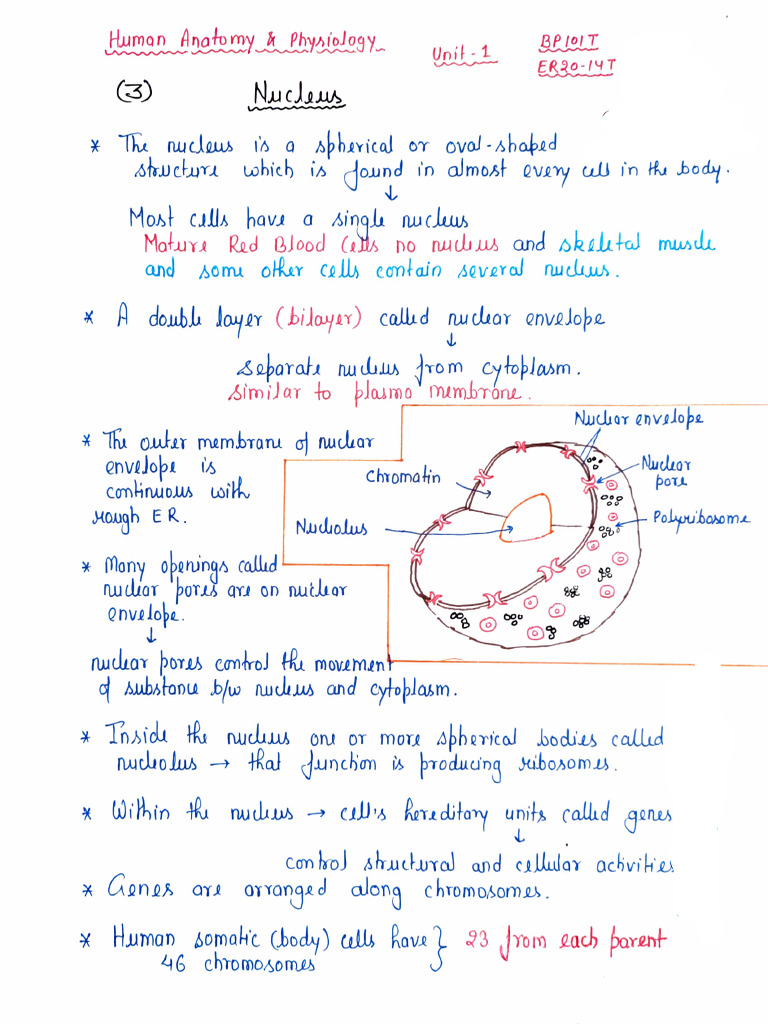 Human Anatomy & Physiology
Unit-1
BP101T
ER20-14T
(3) Nucleus
* The nucleus is a spherical or oval-shaped
structure which is found in almost every cell in the body.
↓
Most cells have a single nucleus
Mature Red Blood Cells no nucleus and skeletal muscle
and some other cells contain several nucleus.
* A double layer (bilayer) called nuclear envelope
↓
separate nucleus from cytoplasm.
similar to plasma membrane.
* The outer membrane of nuclear
envelope is
continuous with
rough ER.
Nuclear envelope
Chromatin
Nuclear
pore
Nucleolus
Polyribosome
* Many openings called
nuclear pores are on nuclear
envelope.
↓
nuclear pores control the movement
of substance b/w nucleus and cytoplasm.
* Inside the nucleus one or more spherical bodies called
nucleolus → that function is producing ribosomes.
* Within the nucleus → cell's hereditary units called genes
↓
control structural and cellular activities
* Genes are arranged along chromosomes.
* Human somatic (body) cells have } 23 from each parent
46 chromosomes